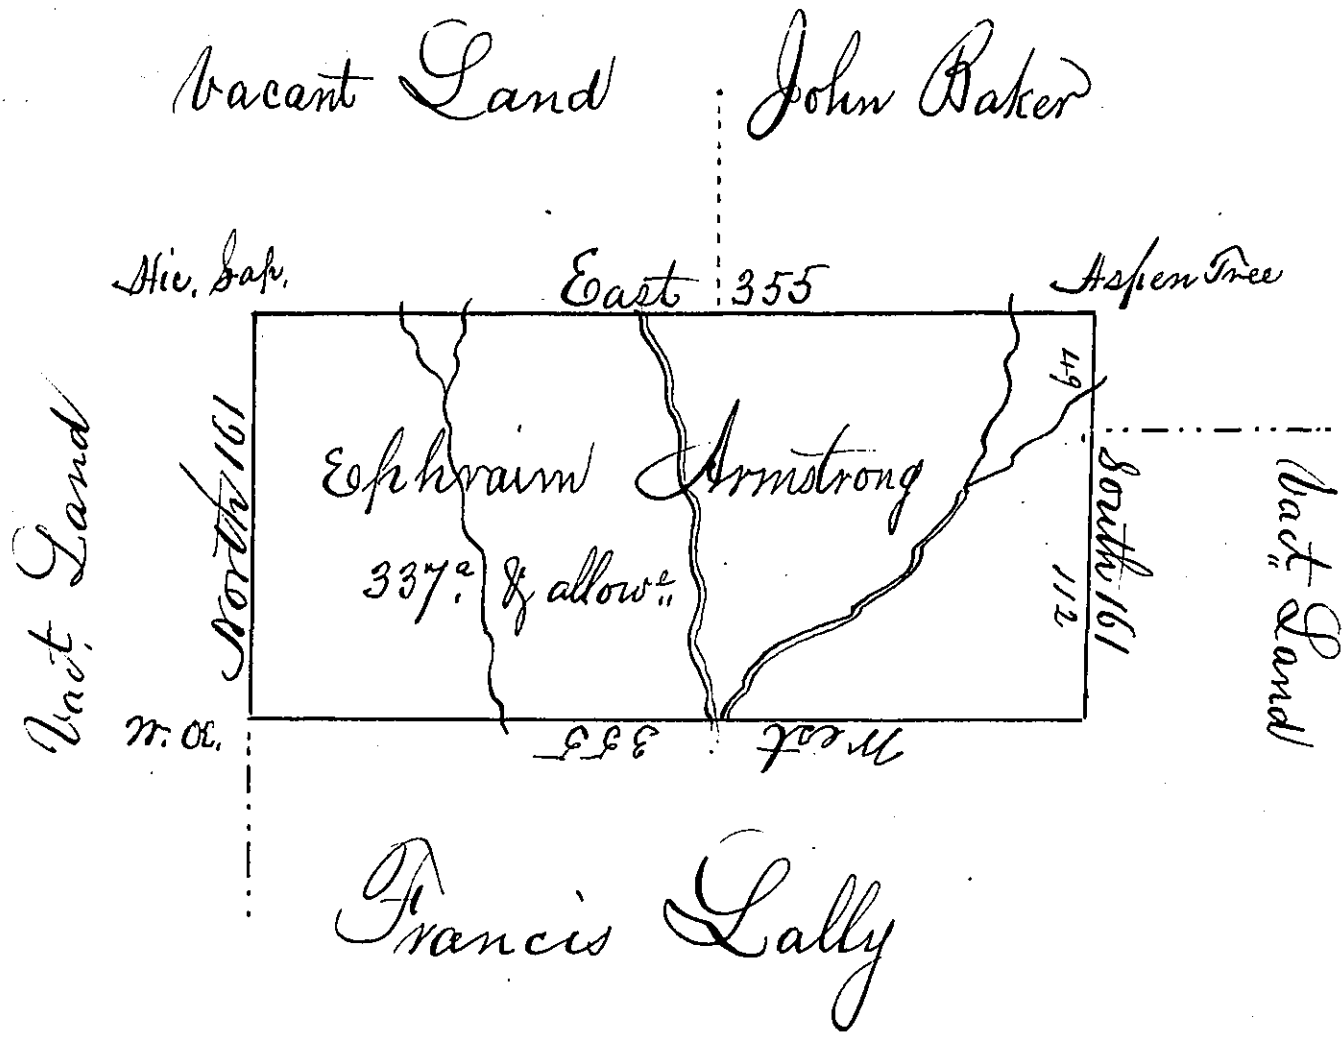 Vacant Land
John Baker
Hic. Sap.
East 355
Aspen Tree
Vact. Land
North 161
Ephraim Armstrong
337 a. & allow e.
49
South 161
112
Vact. Land
W. Ok.
West 355
Francis Lally